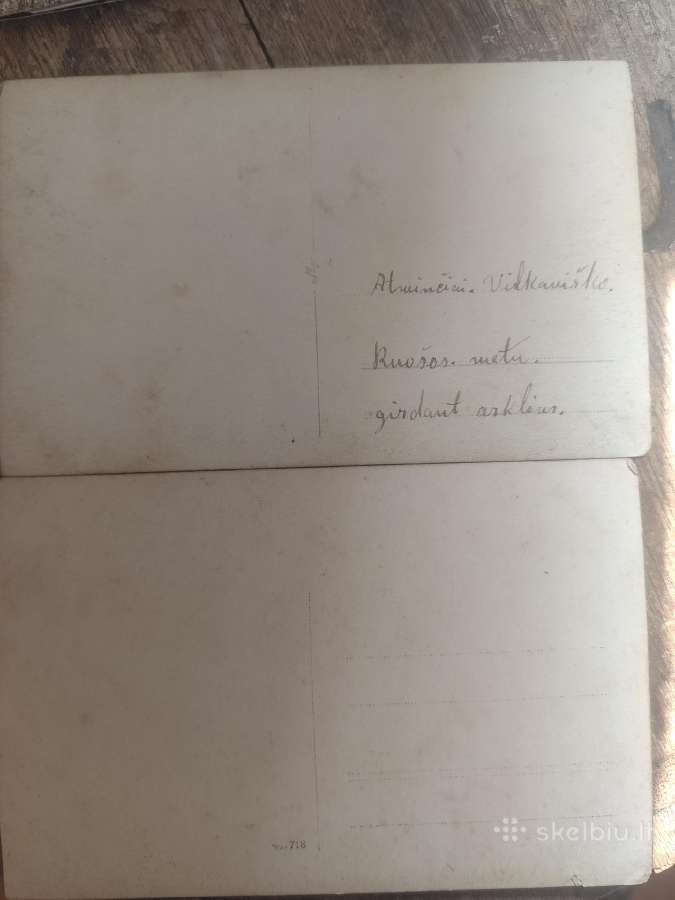 Atminčiai. Vilkaviško.
Ruošos. metu.
girdant arklius.
718
skelbiu.lt